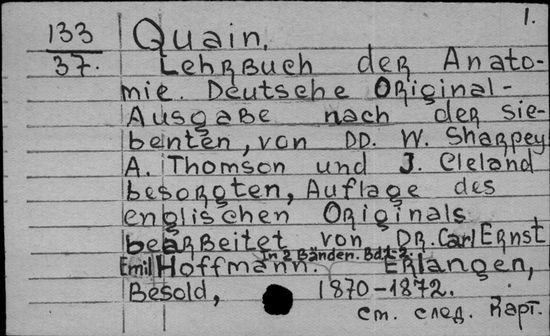 1.
133
37.
Quain,
Lehrbuch der Anato-
mie. Deutsche Original-
Ausgabe nach der sie-
benten, von DD. W. Sharpey
A. Thomson und J. Cleland
besorgten, Auflage des
englischen Originals
bearbeitet von DR. Carl Ernst
Emil Hoffmann. In 2 Bänden. Bd 1-2. Erlangen,
Besold, 1870-1872.
см. след. карт.